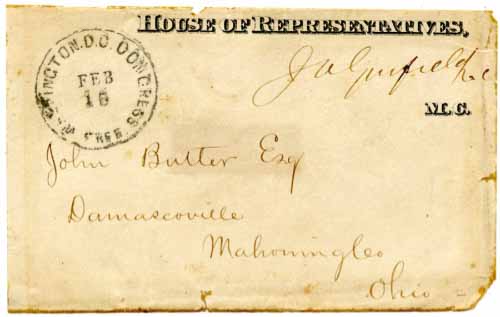 HOUSE OF REPRESENTATIVES,
WASHINGTON. D.C. CONGRESS
FEB
16
FREE
J A Garfield
M.C.
John Butler Esq
Damascoville
Mahoning Co
Ohio